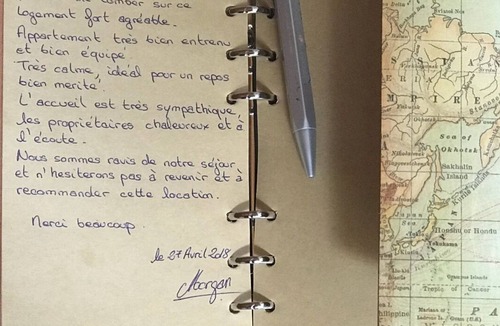 tomber sur ce
logement fort agréable.
Appartement très bien entrenu
et bien équipé
Très calme, idéal pour un repos
bien merité
L'accueil est très sympathique,
les propriétaires chaleureux et à
l'écoute.
Nous sommes ravis de notre séjour
et n'hesiterons pas à revenir et à
recommander cette location.
Merci beaucoup
le 27 Avril 2018
Morgan
Sea of
Okhotsk
Sakhalin
Island
Kurile Islands
Japan
Sea
JAPAN
Hondshu or Hondo
Yokohama
Tropic of Cancer